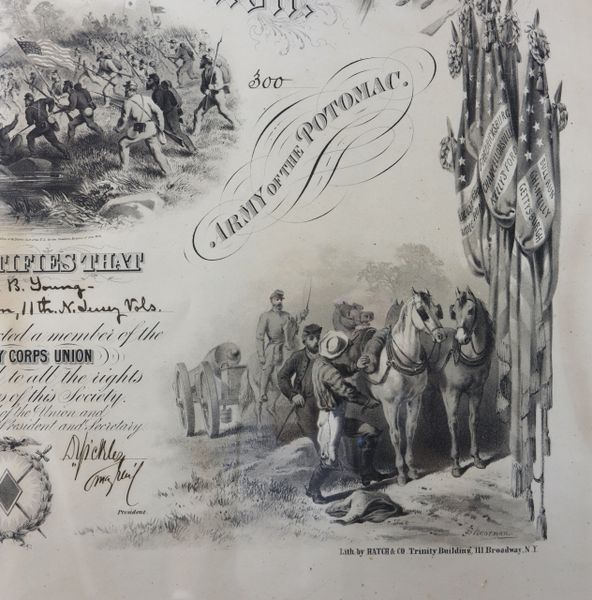 300
ARMY OF THE POTOMAC.
TIFIES THAT
B. Young-
11th. N. Jersey Vols.
cted a member of the
Y CORPS UNION
to all the rights
of this Society.
of the Union and
President and Secretary.
D Sickles
Maj Genl
President
FREDERICKSBURG
CHANCELLORSVILLE
GETTYSBURG
Lith. by HATCH & CO. Trinity Building, 111 Broadway, N.Y.